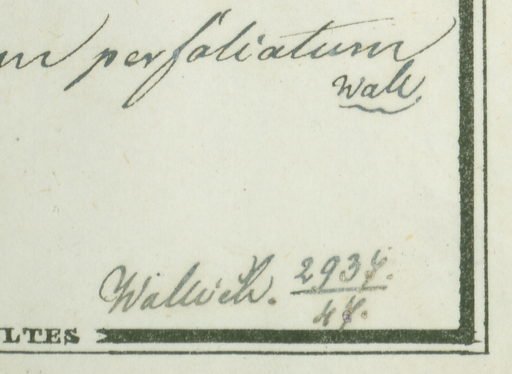 m perfoliatum
Wall.
Wallich. 2937.
47.
LTES